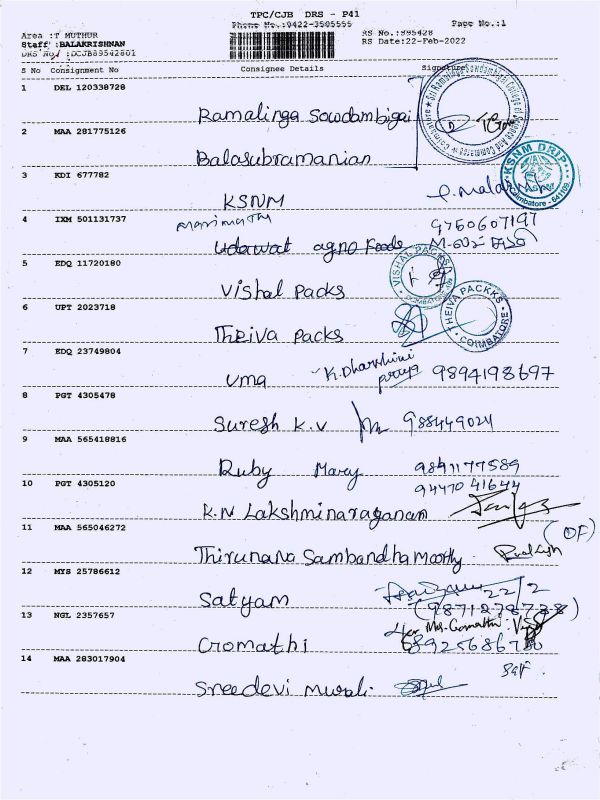 TPC/CJB DRS - P41
Phone No.:0422-3505555
Page No.:1
Area :T MUTHUR
Staff :BALAKRISHNAN
DRS No. :DCJB89542801
RS No.:895428
RS Date:22-Feb-2022
S No Consignment No Consignee Details Signature
1 DEL 120338728
Ramalinga Sowdambigai
2 MAA 281775126
Balasubramanian
3 KDI 677782
KSNM
KSNM DRIP
Coimbatore - 641109
4 IXM 501131737
9750607197
Udawat agno Foods
5 EDQ 11720180
Vishal Packs
VISHAL PACKS
COIMBATORE
6 UPT 2023718
Theiva Packs
THEIVA PACKKS
COIMBATORE
7 EDQ 23749804
Uma K.Dharshini priya 9894198697
8 PGT 4305478
Suresh K.V 988449024
9 MAA 565418816
Ruby Mary 9891177589
10 PGT 4305120
9447041644
K.N Lakshminarayanan
11 MAA 565046272
(OF)
Thirunana Sambandha Moorthy
12 MYS 25786612
22/2
Satyam
13 NGL 2357657
Cromathi
14 MAA 283017904
Self
Sreedevi Murali